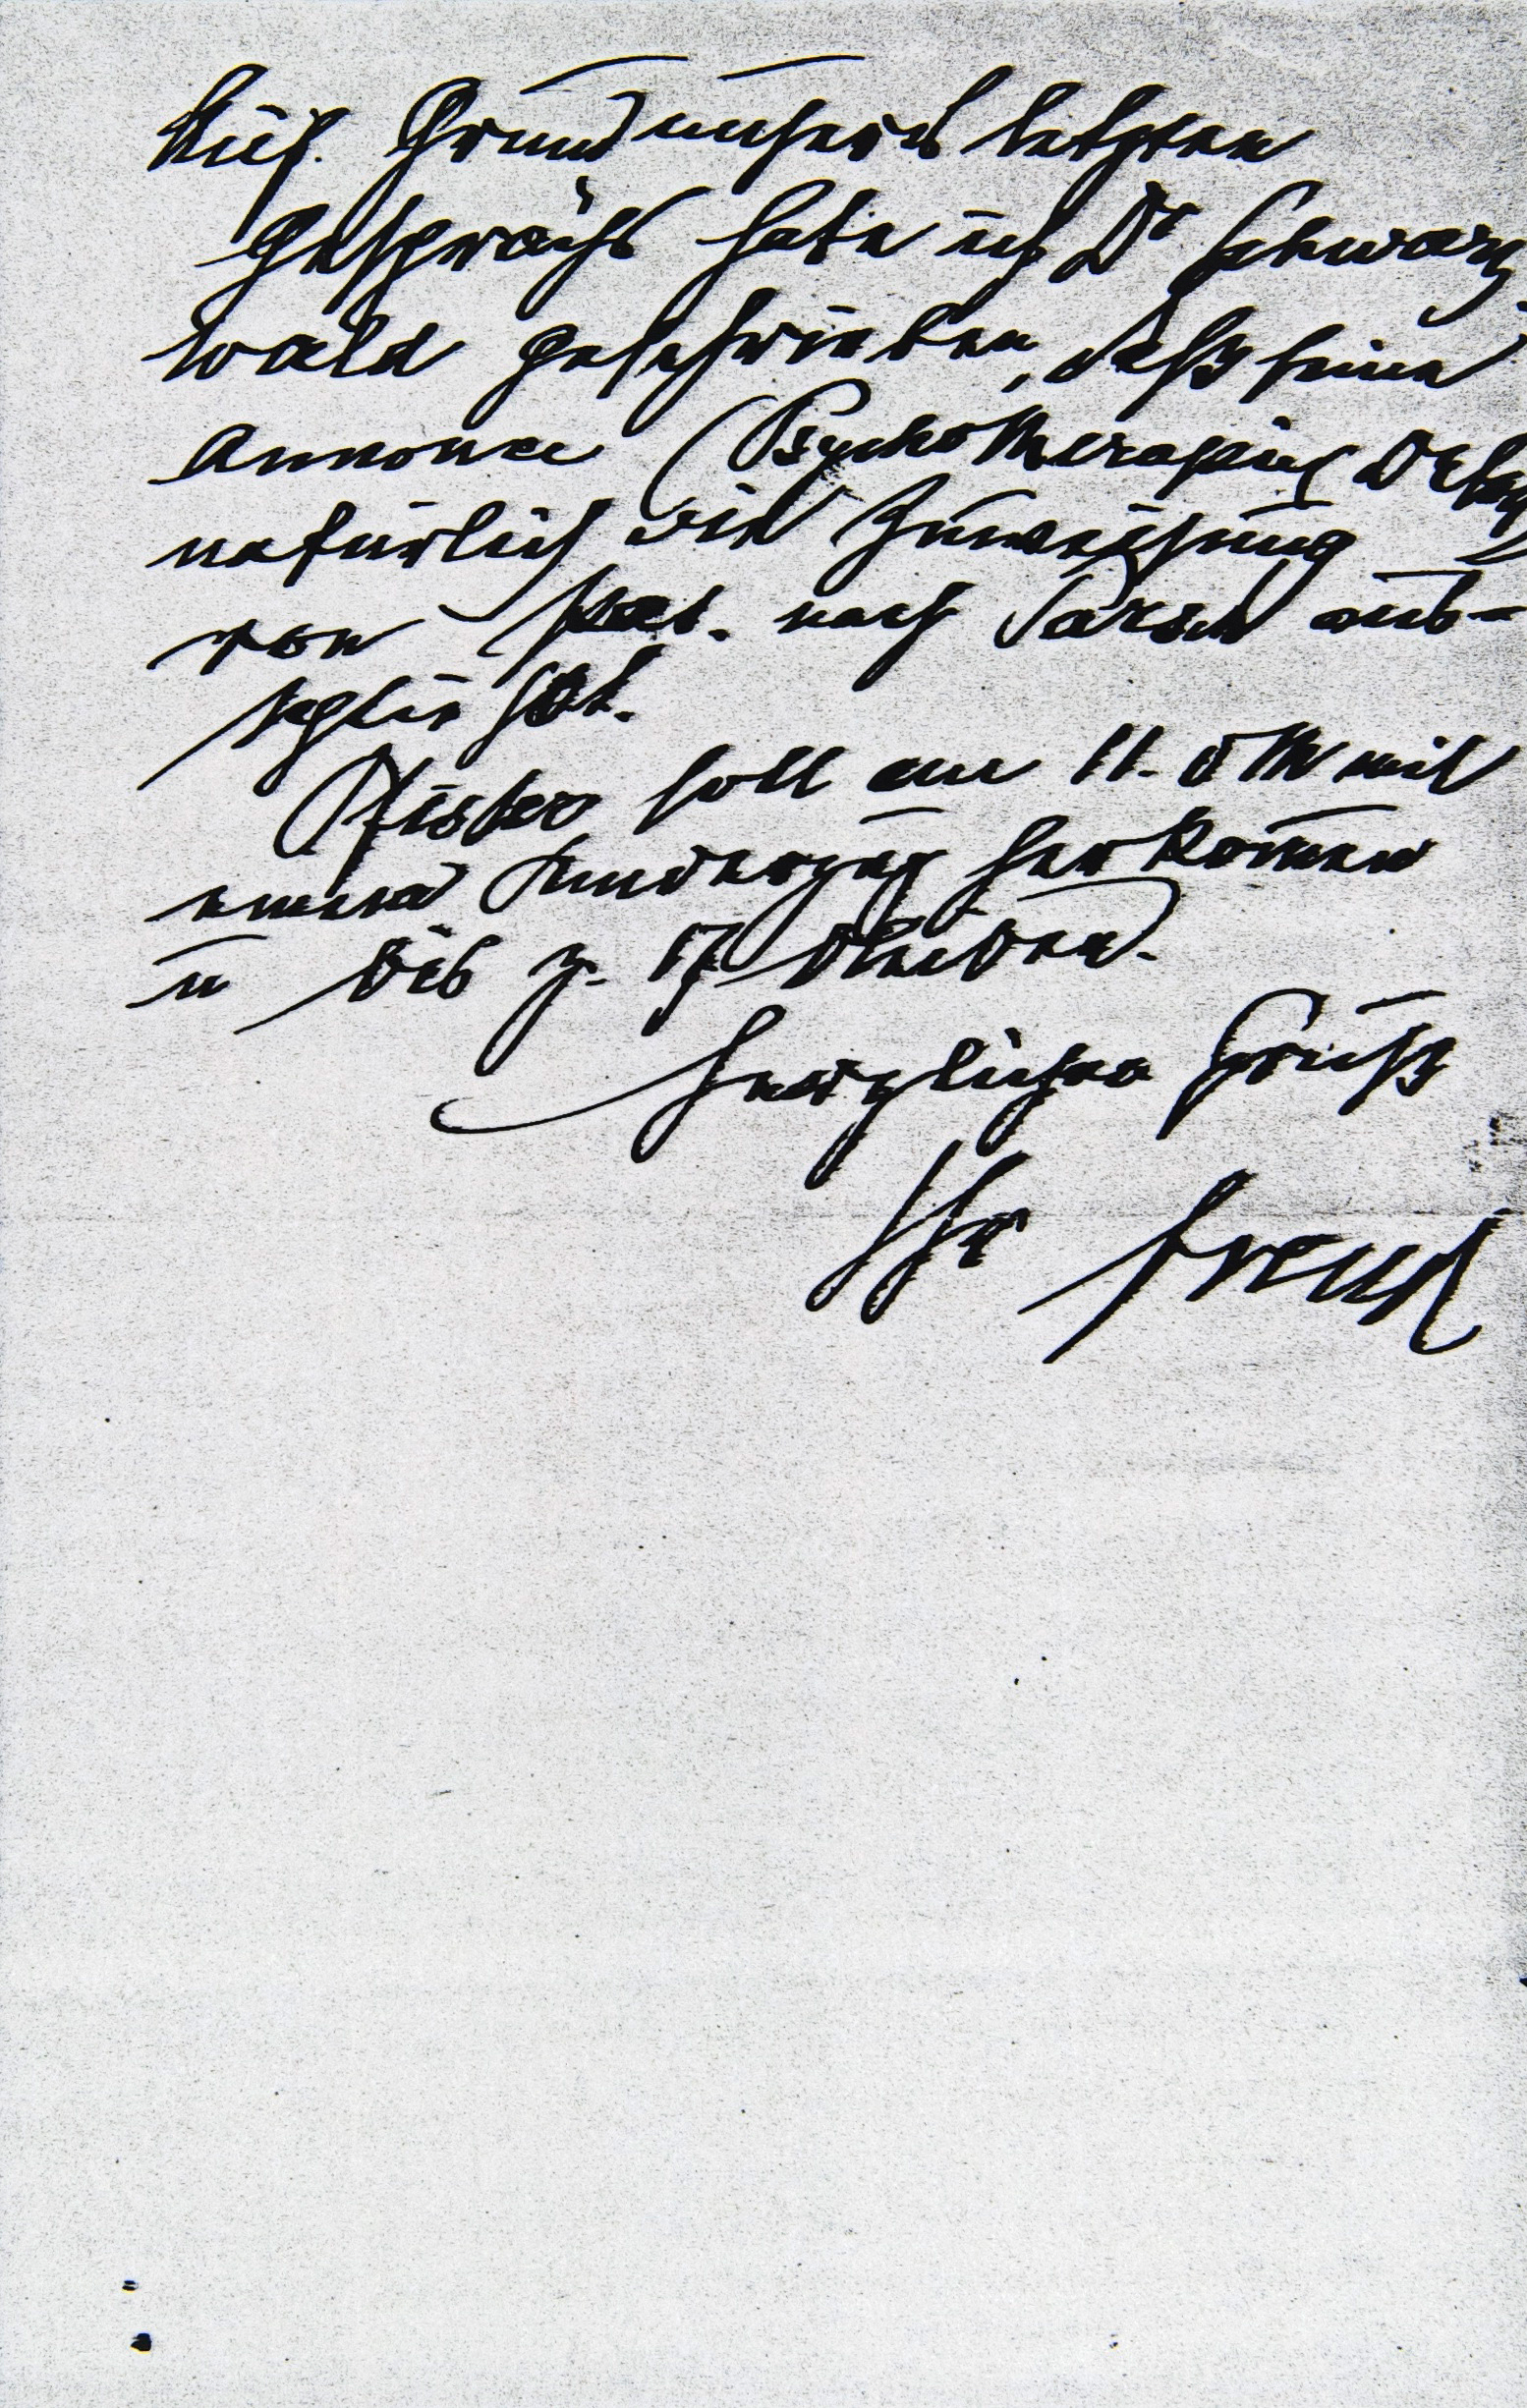 Auf Grund unseres letzten
Gesprächs habe ich Dr Schwarz
wald geschrieben, daß seine
Annonce (Psychotherapie
natürlich die Zuweisung
von Pat. nach Parsch aus-
schließt.
Pfister soll am 11. d M mit
einem Kinderzug herkommen
u bis z. 17 bleiben.
Herzlichen Gruß
Ihr Freud